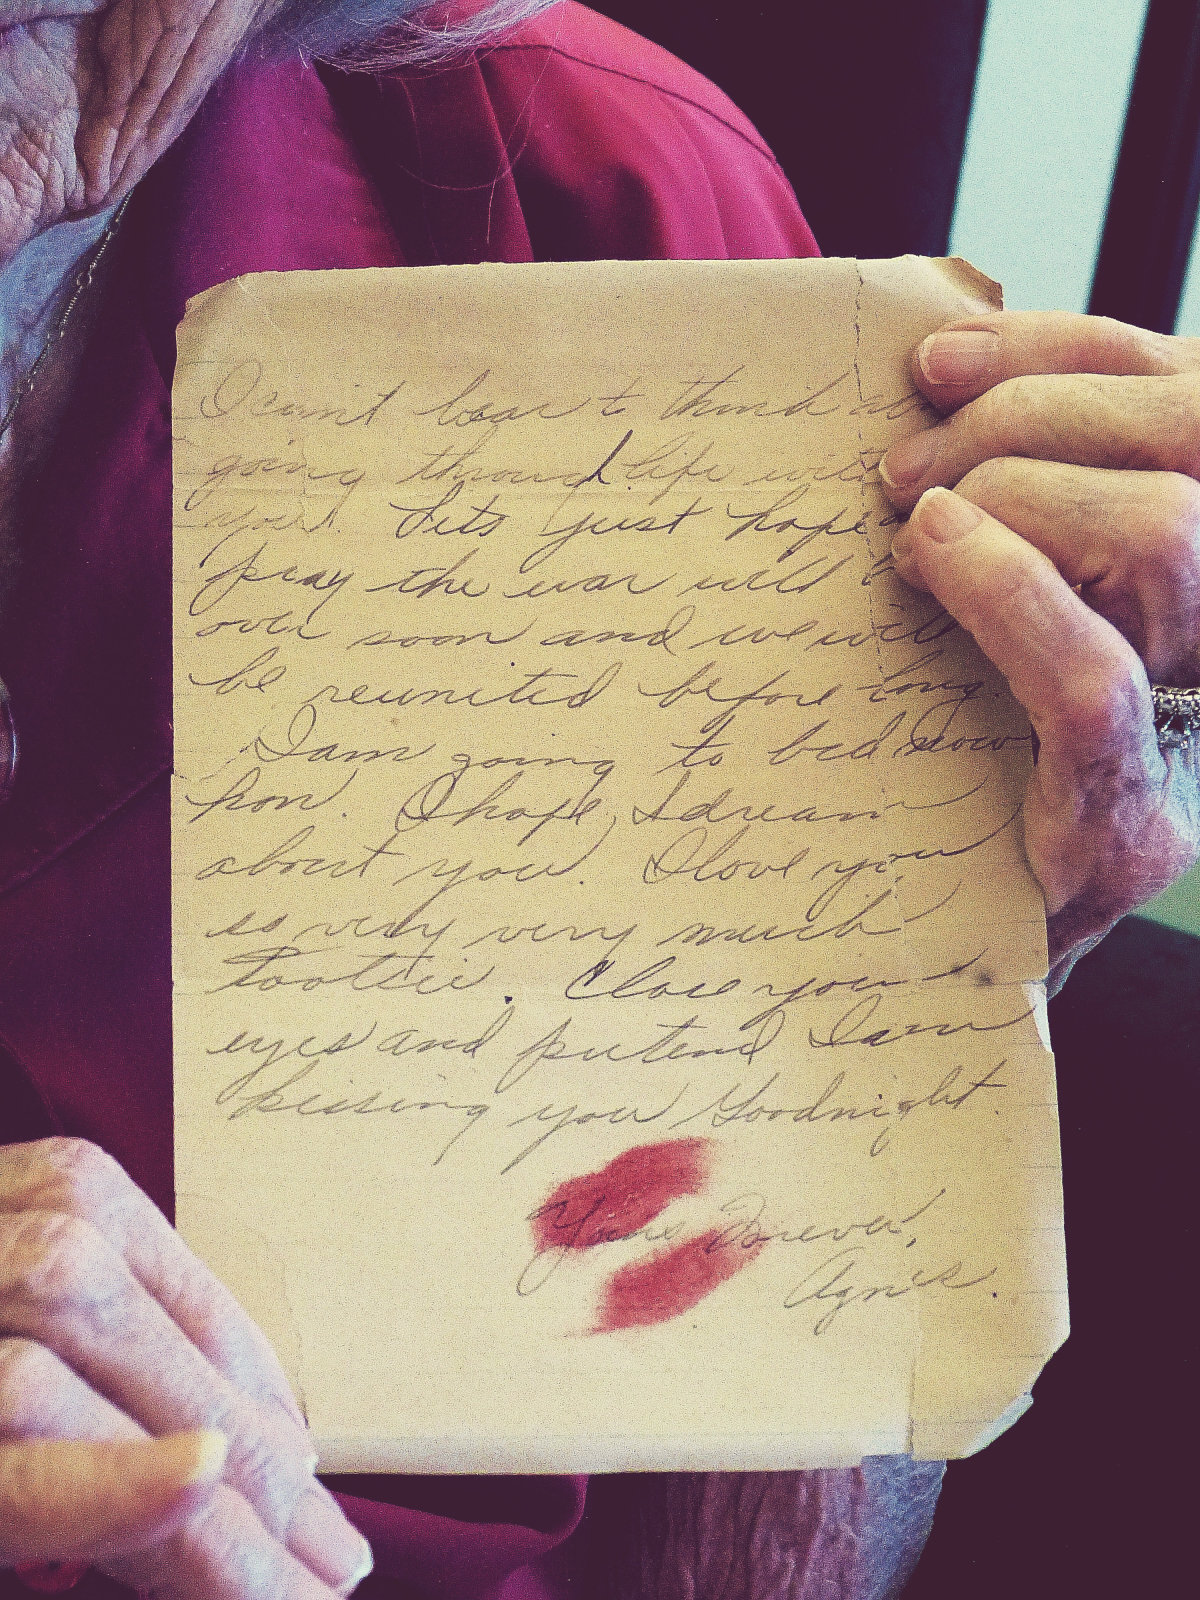 I can't bear to think ab
going through life with
you. Lets just hope a
pray the war will b
over soon and we will
be reunited before long.
I am going to bed now
hon. I hope I dream
about you. I love you
so very very much
tootsie. Close your
eyes and pretend I am
kissing you Goodnight.
Yours Forever,
Agnes.